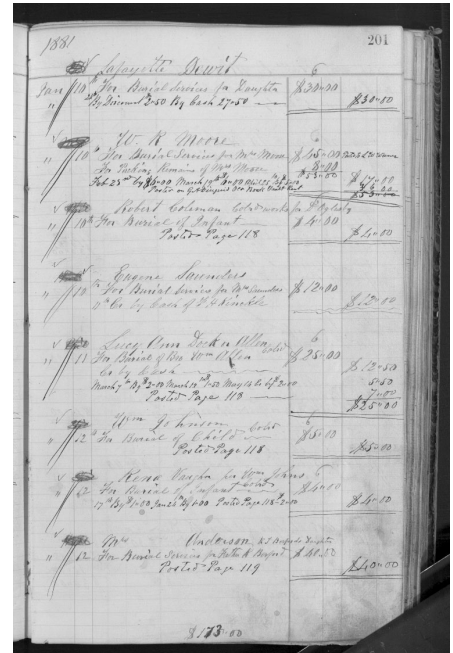 1881 201
Lafayette Dewit 6
Jan 10th For Burial Services for Daughter $30-00
By Discount 2-50 By Cash 27-50 $30-00
W. R. Moore 6
" 10th For Burial Services for Mrs Moore $45-00
For Packing Remains of Mrs Moore 8-00
$53-00
Feb 25th By $6-00 March 14th $17-00
Posted on
$53-00
Robert Coleman Cold works for
" 10th For Burial of Infant $4-00
Posted Page 118 $4-00
Eugene Saunders
" 10 For Burial Services for Mrs Saunders $12-00
Cr by Cash of $12-00
Lucy Ann Allen Cold 6
" 11 For Burial of Bro Wm Allen $25-00
Cr by Cash $12-50
March 7th By $2-00 March 12 1-50 May 14 2-00 5-50
Posted Page 118 7-00
$25-00
Wm Johnson Cold 6
" 12 For Burial of Child $5-00
Posted Page 118 $5-00
Rena Vaughn for Wm Johns 6
" 12 For Burial of Infant Cold $4-00
17th By $1-00 Jan 25th By 1-00 Posted Page 118-2-00 $4-00
Mrs Anderson
" 12 For Burial Services for $40-00
Posted Page 119 $40-00
$173-00